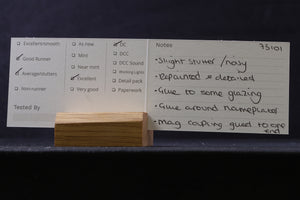 Excellent/smooth
Good Runner
Average/stutters
Non-runner
Tested By
As new
Mint
Near mint
Excellent
Very good
DC
DCC
DCC Sound
Working Lights
Detail pack
Paperwork
Notes 75101
-Slight stutter / noisy
-Repainted & detailed
-Glue to some glazing
-Glue around nameplates
-Mag coupling glued to one
end